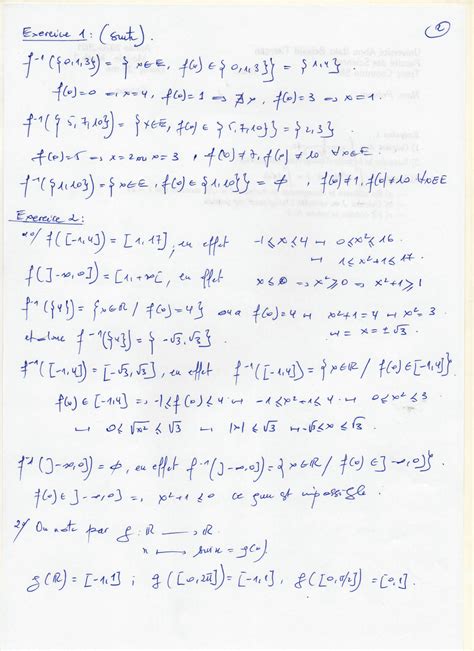 Exercice 1: (suite).
②
f⁻¹({0,1,3}) = {x∈E, f(x) ∈ {0,1,3}} = {1,4}.
f(x)=0 ⇒ x=4, f(x)=1 ⇒ ∄x, f(x)=3 ⇒ x=1.
f⁻¹({5,7,10}) = {x∈E, f(x) ∈ {5,7,10}} = {2,3}.
f(x)=5 ⇒ x=2 ou x=3, f(x)≠7, f(x)≠10 ∀x∈E.
f⁻¹({1,10}) = {x∈E, f(x) ∈ {1,10}} = ∅, f(x)≠1, f(x)≠10 ∀x∈E
Exercice 2:
1°/ f([-1,4]) = [1,17], en effet -1≤x≤4 ⇒ 0≤x²≤16
⇒ 1≤x²+1≤17.
f(]-∞,0]) = [1,+∞[, en effet x≤0 ⇒ x²≥0 ⇒ x²+1≥1
f⁻¹({4}) = {x∈ℝ / f(x)=4} on a f(x)=4 ⇒ x²+1=4 ⇒ x²=3
⇒ x=±√3.
et donc f⁻¹({4}) = {-√3,√3}.
f⁻¹([-1,4]) = [-√3,√3], en effet f⁻¹([-1,4]) = {x∈ℝ / f(x)∈[-1,4]}
f(x)∈[-1,4] ⇒ -1≤f(x)≤4 ⇒ -1≤x²+1≤4 ⇒ 0≤x²≤3
⇒ 0≤√x²≤√3 ⇒ |x|≤√3 ⇒ -√3≤x≤√3.
f⁻¹(]-∞,0]) = ∅, en effet f⁻¹(]-∞,0]) = {x∈ℝ / f(x)∈]-∞,0]}
f(x)∈]-∞,0] ⇒ x²+1≤0 ce qui est impossible.
2°/ On note par g: ℝ ⟶ ℝ
x ⟼ sin x = g(x).
g(ℝ) = [-1,1]; g([0,2π]) = [-1,1], g([0,π/2]) = [0,1].